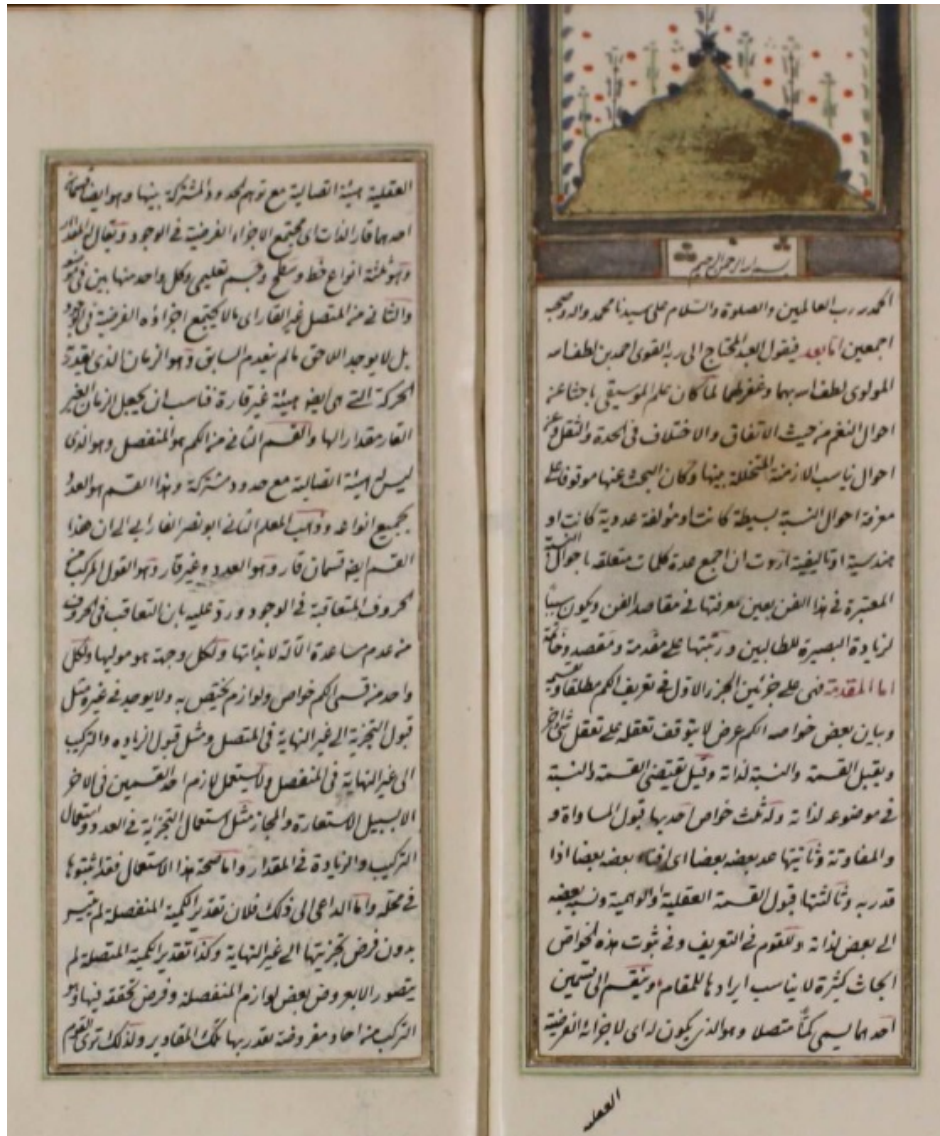 بسم الله الرحمن الرحيم
الحمد لله رب العالمين والصلوة والسلام على سيدنا محمد واله وصحبه
اجمعين اما بعد فيقول العبد المحتاج الى ربه القوى احمد بن لطف الله
المولوى لطف الله بهما وغفر لهما لما كان علم الموسيقى باحثا عن
احوال النغم من حيث الاتفاق والاختلاف فى الحدة والثقل وعن
احوال تناسب الازمنة المتخللة بينها وكان البحث عنها موقوفا على
معرفة احوال النسبة بسيطة كانت او مؤلفة عددية كانت او
هندسية او تاليفية اردت ان اجمع عدة كلمات متعلقة باحوال النسبة
المعتبرة فى هذا الفن يعين معرفتها فى مقاصد الفن ويكون سببا
لزيادة البصيرة للطالبين ورتبتها على مقدمة ومقصد وخاتمة
اما المقدمة فهى على جزئين الجزء الاول فى تعريف الكم مطلقا وتقسيمه
وبيان بعض خواصه الكم عرض لا يتوقف تعقله على تعقل شئ اخر
ويقبل القسمة والنسبة لذاته وقيل يقتضى القسمة والنسبة
فى موضوعه لذاته وله ثلث خواص احديها قبول المساواة و
والمفاوتة وثانيتها عد بعضه بعضا اى افناء بعضه بعضا اذا
قدر به وثالثتها قبول القسمة العقلية والوهمية ونسبة بعضه
الى بعض لذاته وللقوم فى التعريف وفى ثبوت هذه الخواص
ابحاث كثيرة لا يناسب ايرادها للمقام وينقسم الى قسمين
احدهما يسمى كمّا متصلا وهو الذى يكون له اى لاجزائه الفرضية
العقلية
العقلية هيئة اتصالية مع توهم الحدود المشتركة بينها وهو ايضا قسمان
احدهما قار الذات اى مجتمع الاجزاء الفرضية فى الوجود ويقال له المقدار
وهو ثلثة انواع خط وسطح وجسم تعليمى وكل واحد منها بين فى موضعه
والثانى من المتصل غير القار اى ما لا يجتمع اجزاؤه الفرضية فى الوجود
بل لا يوجد اللاحق ما لم ينعدم السابق وهو الزمان الذى يقدر به
الحركة التى هى ايضا هيئة غير قارة فناسب ان يجعل الزمان الغير
القار مقدارا لها والقسم الثانى من الكم هو المنفصل وهو الذى
ليس له هيئة اتصالية مع حدود مشتركة وهذا القسم هو العدد
بجميع انواعه وذهب المعلم الثانى ابو نصر الفارابى الى ان هذا
القسم ايضا قسمان قار وهو العدد وغير قار وهو القول المركب من
الحروف المتعاقبة فى الوجود ورد عليه بان التعاقب فى الحروف
من عدم مساعدة الآلة لا لذاتها ولكل وجهة هو موليها ولكل
واحد من قسمى الكم خواص ولوازم يختص به ولا يوجد فى غيره مثل
قبول التجزية الى غير النهاية فى المتصل ومثل قبول الزيادة والتركيب
الى غير النهاية فى المنفصل ولا يستعمل لازم احد القسمين فى الاخر
الا بسبيل الاستعارة والمجاز مثل استعمال التجزية فى العدد واستعمال
التركيب والزيادة فى المقدار واما صحة هذا الاستعمال فقد اثبتوها
فى محله واما الداعى الى ذلك فلان تقدير الكمية المنفصلة لم يتيسر
بدون فرض تجزيتها الى غير النهاية وكذا تقدير الكمية المتصلة لم
يتصور الا بعروض بعض لوازم المنفصلة وفرض تحققه فيها وهو
التركب من احاد مفروضة يقدر بها تلك المقادير ولذلك ترى القوم